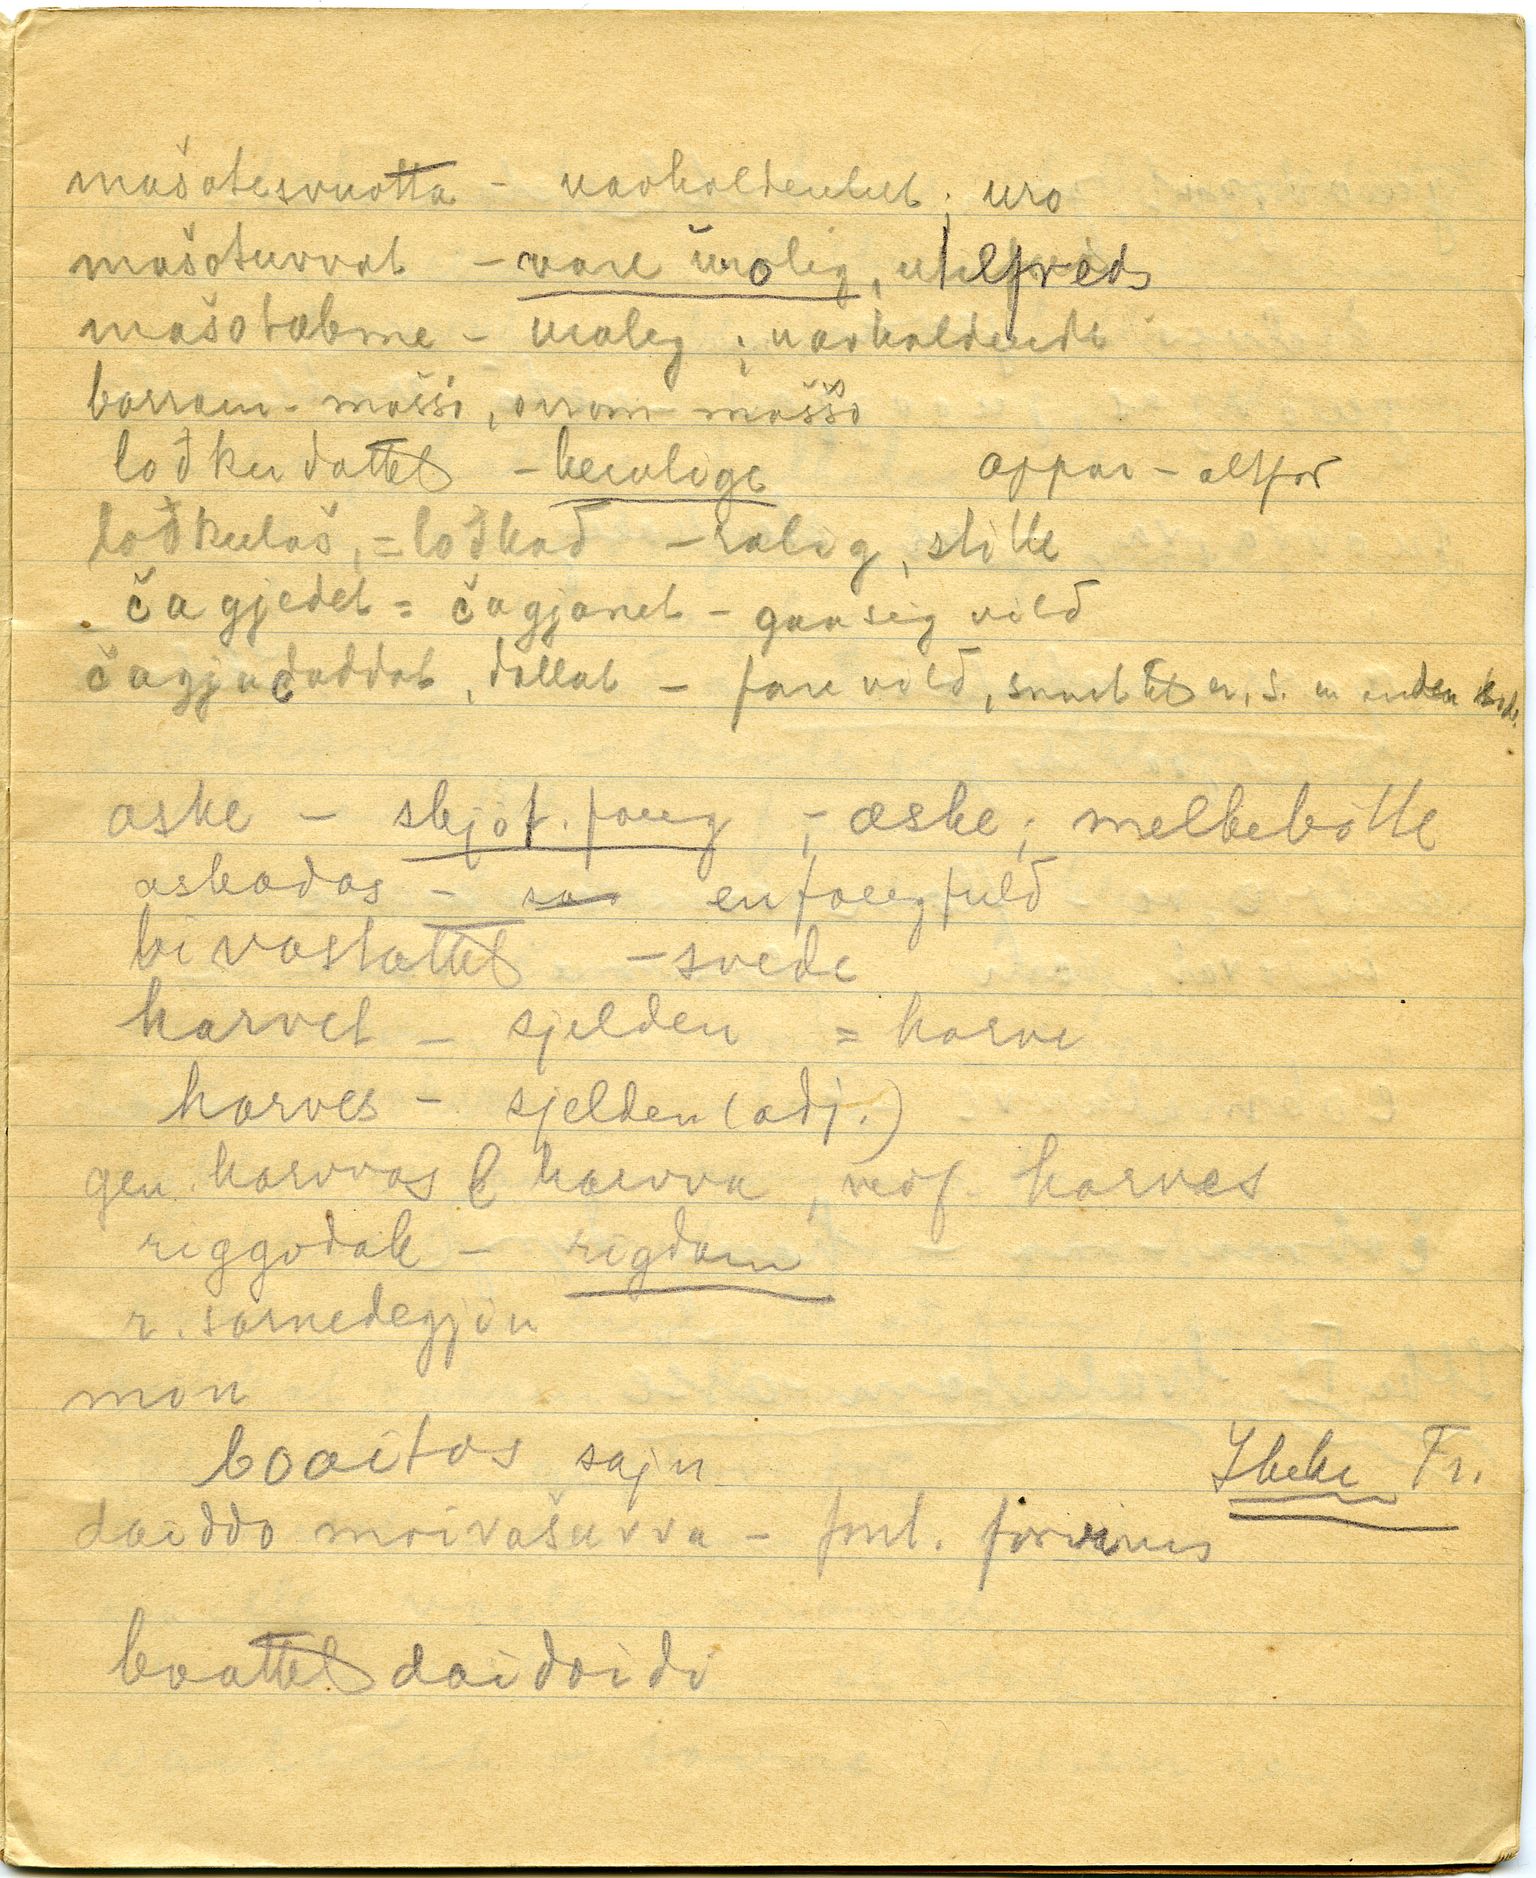 mašotesvuotta - uavholdenhet; uro
mašotuvvat - være urolig, utilfreds
mašotæbme - urolig; uavholdende
borram-maššo, orrom-maššo
lođkudattet - berolige appar - altfor
lođkulaš, = lođkad - rolig, stille
čagjedet = čagjanet - gaa sig vild
čagjadaddat, dallat - fare vild, snart et er, s. en anden
aske - skjöt. fang; æske; melkebötte
askadas - en fangfuld
bivastattet - svede
harvet - sjelden = harve
harves - sjelden (adj.)
gen. harvvas & harvva, harves
riggodak - rigdom
r. sarnedegjin
mon
boaitos sajn Ibeke Fr.
daiddo moivašuvva -
boattet daidaidi